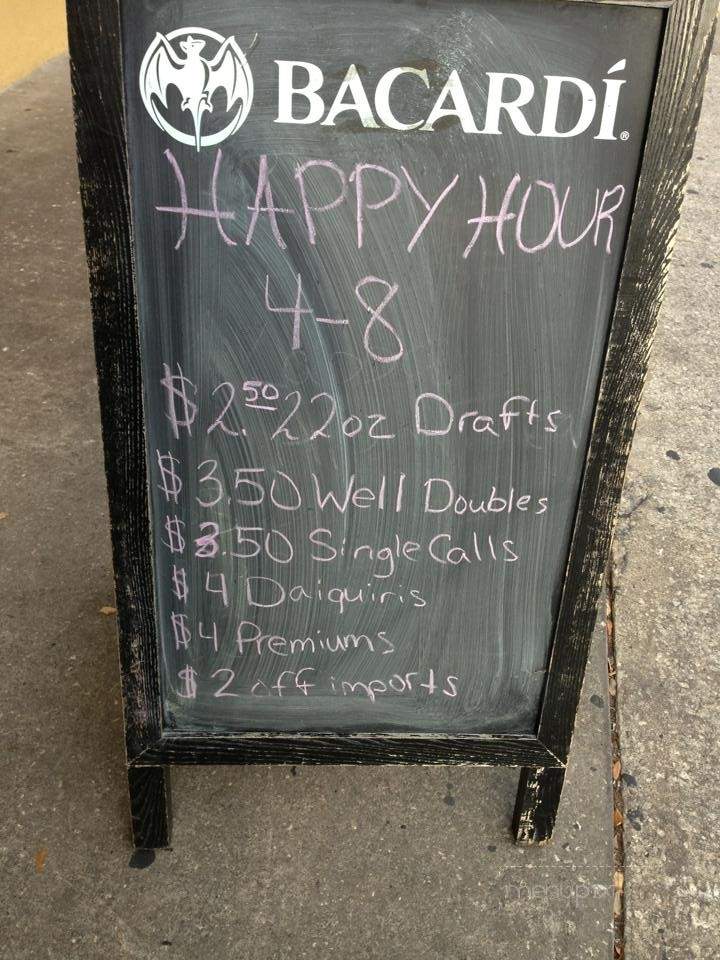 BACARDÍ®
HAPPY HOUR
4-8
$2.50 22oz Drafts
$3.50 Well Doubles
$3.50 Single Calls
$4 Daiquiris
$4 Premiums
$2 off imports